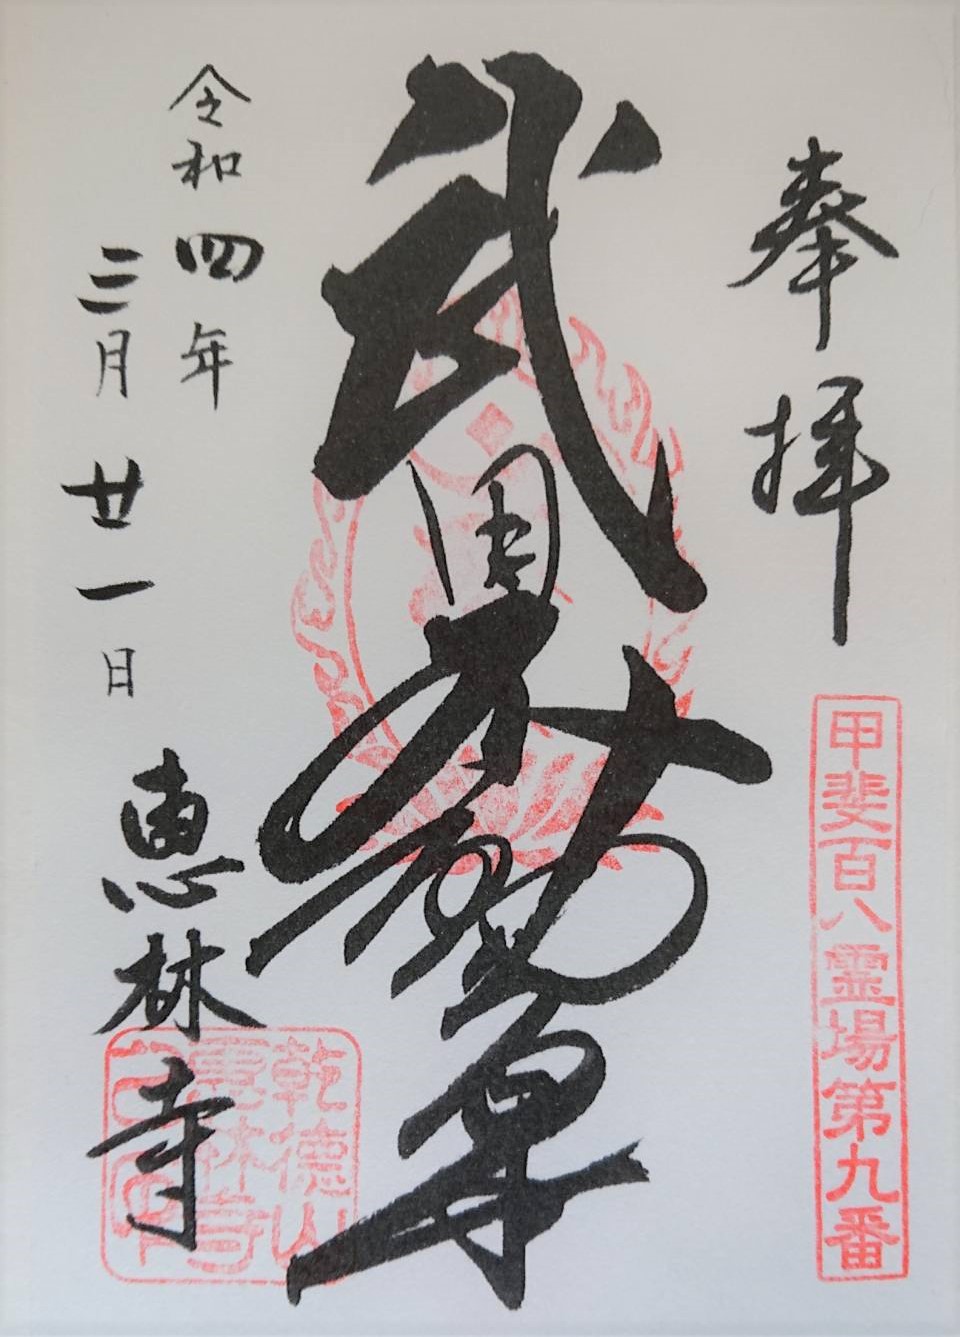 奉拝
甲斐百八霊場第九番
武田不動尊
令和四年
三月廿一日
恵林寺
乾徳山
恵林寺